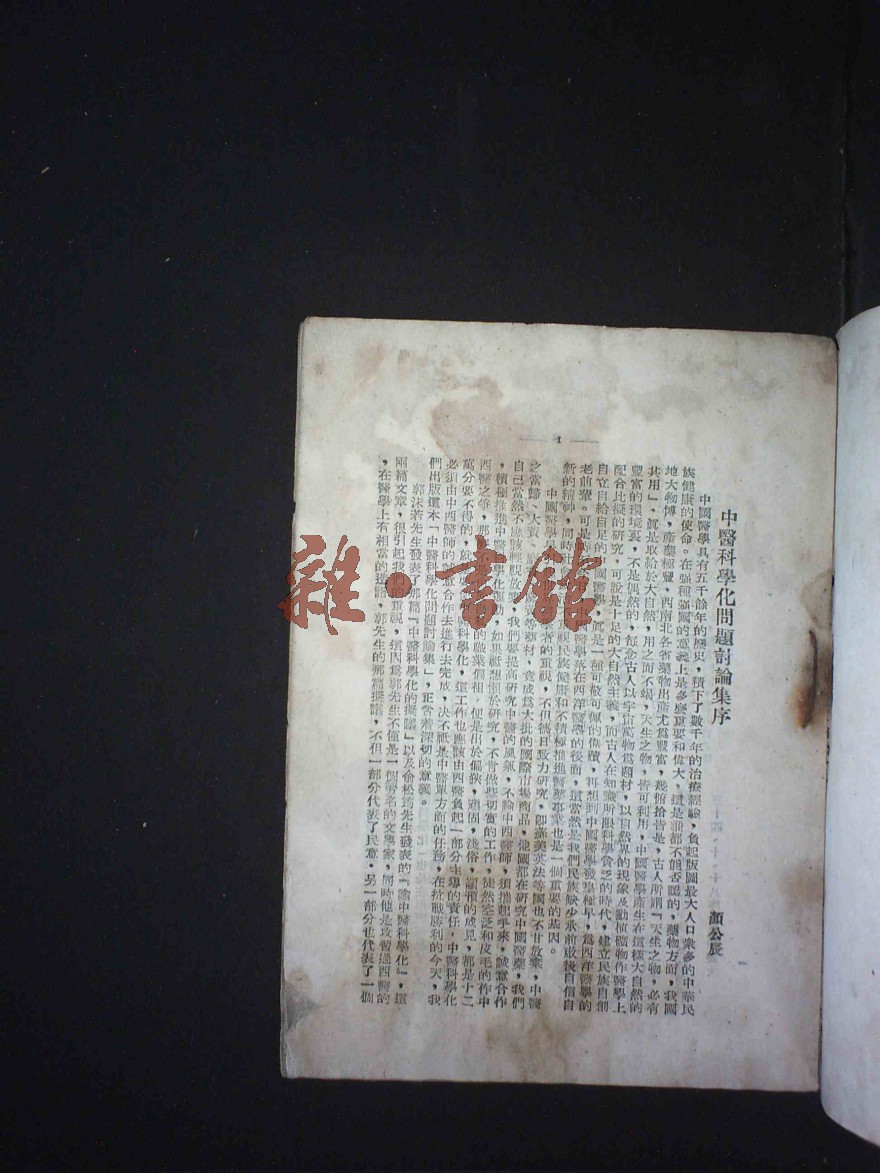 中醫科學化問題討論集序
顏公辰
中國醫學具有五千餘年的歷史，積下了數千年的治療經驗，負起版圖最大人口衆多的中華民
族健康的使命。在強種強國的意義上是多麼重要和偉大，這是誰都不能否認的，藥物方面，我國
地大物博，產藥極豐，西南北各省藥物出產尤爲豐富，幾俯拾皆是，古人所謂『天生之物，必有
其用』，眞是取給於大自然，用之而不竭，天生之物，皆可利用，中國醫學產生在這樣大自然的
豐富的環境裏，不是偶然的，每念古人以宇宙萬物爲題材，以自然界的現象及動植礦物作醫學上
配合比擬的研究，可說是十足的大自然主義，而古人在知識所限科學貧乏的時代，建立民族自創
自立自給自足的中國醫學，眞是一種可敬可佩的偉蹟，再想到中國醫學發皇極早，爲西洋醫學的
老前輩。可是時至今
學落在西洋醫學的後面，這當然是我們民族缺少承前啟後自信自
新的精神，同時
視民族健康和不積極推進醫藥事業也是一個重要的基因。
中國醫學與
者的重視，不但德日致力研究，即蘇美英法等國也不甘放棄，中醫
之當歸、大黃
等藥材，竟成爲大批的國際市場商品，他國都在研究中國醫藥，我們
自己當然不應該輕視放棄，我們要提高研究中醫的風氣，不論中西醫師，須攜起手來，誠意合作
，積極推進中醫科學化運動，如果祇想懶於研究，不肯做些切實的工作，徒然空泛和皮毛的作中
西醫之爭，那
的職業偏袒，便是出於偏狹，頑固，淺俗，謭陋的成見，都是十二
萬分要不得的，就
醫科學化，這工作也應該由西醫負起一部分主導的責任，中醫科學化
必須由中西醫師的誠意合作去進行去完成，決不祇是中醫單方面的任務，在抗戰勝利的今天，我
們出版這本『中醫科學化問題討論集』，正含着深切的意義。
郭沫若先生發表了那篇『中醫科學化的擬議』以及余松筠先生發表的『論中醫科學化』，這
兩篇文章，很引起我們的重視，這因爲郭先生不僅是一個著名的文學家，同時他是攻習過西醫的
，在醫學上有相當的造詣，郭先生的那篇擬議，不但一部分代表了民意，另一部分也代表了一個
1
雜·書館